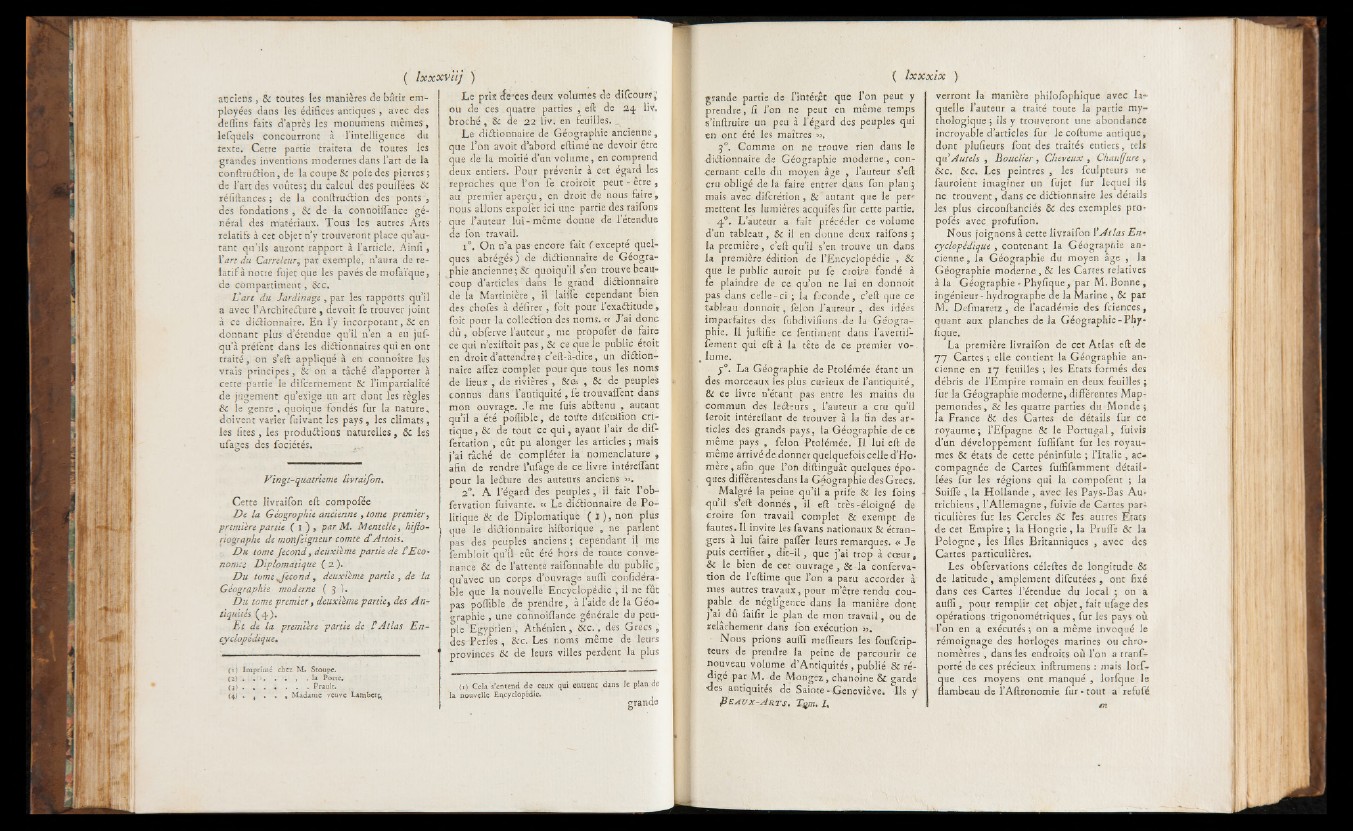 ( lxxxviij )
anciens, & toutes les manières de bâtir em-
ployées dans les édifices antiques, avec des
dessins faits d'après les monumens mêmes,
lesquels concourront à l'intelligence du
texte. Cette partie traitera de toutes les
grandes inventions modernes dans l'art de la
construction, de la coupe & pose des pierres;
de l'art des voûtes; du calcul des poussées &
résistances; de la construction des ponts,
des fondations, & de la connoissance gé-
néral des matériaux. Tous les autres Arts
relatifs à cet objet n'y trouveront place qu'au-
tant qu'ils auront rapport à l'article. Ainsi,
l'art du Carreleur, par exemple, n'aura de re-
latif à notre sujet que les pavés de mosaïque,
de compartiment, &c.
L'art du Jardinage, par les rapports qu'il
a avec l'Architecture, devoit se trouver joint
à ce dictionnaire. En l'y incorporant, & en
donnant plus d'étendue qu'il n'en a eu jus-
qu'à présent dans les dictionnaires qui en ont
traité, on s'est appliqué à en connoître les
vrais principes, & on a tâché d'apporter à
cette partie le discernement & l'impartialité
de jugement qu'exige un art dont les règles
& le genre, quoique fondés sur la nature,
doivent varier suivant les pays, les climats,
les sites, les productions naturelles, & les
usages des sociétés.
Vingt-quatrieme livraison.
Cette livraison est composée
De la Géographie ancienne, tome premier,
première partie ( 1 ), par M. Mentelle, histo-
riographe de monseigneur comte d'Artois.
Du tome second, deuxième partie de l'Eco-
nomie Diplomatique ( 2 ).
Du tome second, deuxième partie, de la
Géographie moderne ( 3 ).
Du tome premier, deuxième partie, des An-
tiquités (4).
Et de la première partie de l'Atlas En-
cyclopédique.
(1) Imprimé chez M. Stoupe.
(2) . . . . . . . la Porte.
(3) . . . . . . . Prault.
(4) . . . . Madame veuve Lambert.
Le prix de ces deux volumes de discours,
ou de ces quatre parties, est de 24 liv.
broché, & de 22 liv. en feuilles.
Le dictionnaire de Géographie ancienne,
que l'on avoit d'abord estimé ne devoir être
que de la moitié d'un volume, en comprend
deux entiers. Pour prévenir à cet égard les
reproches que l'on se croiroit peut-être,
au premier aperçu, en droit de nous faire,
nous allons exposer ici une partie des raisons
que l'auteur lui-même donne de l'étendue
de son travail.
1°. On n'a pas encore fait (excepté quel-
ques abrégés) de dictionnaire de Géogra-
phie ancienne; & quoiqu'il s'en trouve beau-
coup d'articles dans le grand dictionnaire
de la Martinière, il laisse cependant bien
des choses à désirer, soit pour l'exactitude,
soit pour la collection des noms. « J'ai donc
dû, observe l'auteur, me proposer de faire
ce qui n'existoit pas, & ce que le public étoit
en droit d'attendre; c'est-à-dire, un diction-
naire assez complet pour que tous les noms
de lieux, de rivières, &c. , & de peuples
connus dans l'antiquité, se trouvassent dans
mon ouvrage. Je me suis abstenu, autant
qu'il a été possible, de toute discussion cri-
tique, & de tout ce qui, ayant l'air de dis-
sertation, eût pu alonger les articles; mais
j'ai tâché de compléter la nomenclature,
afin de rendre l'usage de ce livre intéressant
pour la lecture des auteurs anciens ».
2°. A l'égard des peuples, il fait l'ob-
servation suivante. « Le dictionnaire de Po-
litique & de Diplomatique ( 1 ), non plus
que le dictionnaire historique, ne parlent
pas des peuples anciens; cependant il me
sembloit qu'il eût été hors de toute conve-
nance & de l'attente raisonnable du public,
qu'avec un corps d'ouvrage aussi considéra-
ble que la nouvelle Encyclopédie, il ne fût
pas possible de prendre, à l'aide de la Géo-
graphie, une connoissance générale du peu-
ple Egyptien, Athénien, &c., des Grecs,
des Perses, &c. Les noms même de leurs
provinces & de leurs villes perdent la plus
(1) Cela s'entend de ceux qui entrent dans le plan de
la nouvelle Encyclopédie.
grande
( lxxxix )
grande partie de l'intérêt que l'on peut y
prendre, si l'on ne peut en même temps
s'instruire un peu à l'égard des peuples qui
en ont été les maîtres ».
3°. Comme on ne trouve rien dans le
dictionnaire de Géographie moderne, con-
cernant celle du moyen âge, l'auteur s'est
cru obligé de la faire entrer dans son plan;
mais avec discrétion, & autant que le per-
mettent les lumières acquises sur cette partie.
4°. L'auteur a fait précéder ce volume
d'un tableau, & il en donne deux raisons;
la première, c'est qu'il s'en trouve un dans
la première édition de l'Encyclopédie, &
que le public auroit pu se croire fondé à
se plaindre de ce qu'on ne lui en donnoit
pas dans celle-ci; la seconde, c'est que ce
tableau donnoit, selon l'auteur, des idées
imparfaites des subdivisions de la Géogra-
phie. Il justifie ce sentiment dans l'avertis-
sement qui est à la tête de ce premier vo-
lume.
5°. La Géographie de Ptolémée étant un
des morceaux les plus curieux de l'antiquité,
& ce livre n'étant pas entre les mains du
commun des lecteurs, l'auteur a cru qu'il
seroit intéressant de trouver à la fin des ar-
ticles des grands pays, la Géographie de ce
même pays, selon Ptolémée. Il lui est de
même arrivé de donner quelquefois celle d'Ho-
mère, afin que l'on distinguât quelques épo-
ques différentes dans la Géographie des Grecs.
Malgré la peine qu'il a prise & les soins
qu'il s'est donnés, il est très-éloigné de
croire son travail complet & exempt de
fautes. Il invite les savans nationaux & étran-
gers à lui faire passer leurs remarques. « Je
puis certifier, dit-il, que j'ai trop à cœur,
& le bien de cet ouvrage, & la conserva-
tion de l'estime que l'on a paru accorder à
mes autres travaux, pour m'être rendu cou-
pable de négligence dans la manière dont
j'ai dû saisir le plan de mon travail, ou de
relâchement dans son exécution ».
Nous prions aussi messieurs les souscrip-
teurs de prendre la peine de parcourir ce
nouveau volume d'Antiquités, publié & ré-
digé par M. de Mongez, chanoine & garde
des antiquités de Sainte-Geneviève. Ils y
BEAUX-ARTS. Tom. I.
verront la manière philosophique avec la-
quelle l'auteur a traité toute la partie my-
thologique; ils y trouveront une abondance
incroyable d'articles sur le costume antique,
dont plusieurs sont des traités entiers, tels
qu'Autels, Bouclier, Cheveux, Chaussure,
&c. &c. Les peintres, les sculpteurs ne
sauroient imaginer un sujet sur lequel ils
ne trouvent, dans ce dictionnaire les détails
les plus circonstanciés & des exemples pro-
posés avec profusion.
Nous joignons à cette livraison l'Atlas En-
cyclopédique, contenant la Géographie an-
cienne, la Géographie du moyen âge, la
Géographie moderne, & les Cartes relatives
à la Géographie-Physique, par M. Bonne,
ingénieur-hydrographe de la Marine, & par
M. Desmarets, de l'académie des sciences,
quant aux planches de la Géographie-Phy-
sique.
La première livraison de cet Atlas est de
77 Cartes; elle contient la Géographie an-
cienne en 17 feuilles; les Etats formés des
débris de l'Empire romain en deux feuilles;
sur la Géographie moderne, différentes Map-
pemondes, & les quatre parties du Monde;
la France & des Cartes de détails sur ce
royaume; l'Espagne & le Portugal, suivis
d'un développement suffisant sur les royau-
mes & états de cette péninsule; l'Italie, ac-
compagnée de Cartes suffisamment détail-
lées sur les régions qui la composent; la
Suisse, la Hollande, avec les Pays-Bas Au-
trichiens, l'Allemagne, suivie de Cartes par-
ticulières sur les Cercles & les autres Etats
de cet Empire; la Hongrie, la Prusse & la
Pologne, les Isles Britanniques, avec des
Cartes particulières.
Les observations célestes de longitude &
de latitude, amplement discutées, ont fixé
dans ces Cartes l'étendue du local; on a
aussi, pour remplir cet objet, fait usage des
opérations trigonométriques, sur les pays où
l'on en a exécutés; on a même invoqué le
témoignage des horloges marines ou chro-
nomètres, dans les endroits où l'on a trans-
porté de ces précieux instrumens: mais lors-
que ces moyens ont manqué, lorsque le
flambeau de l'Astronomie sur-tout a refusé
en